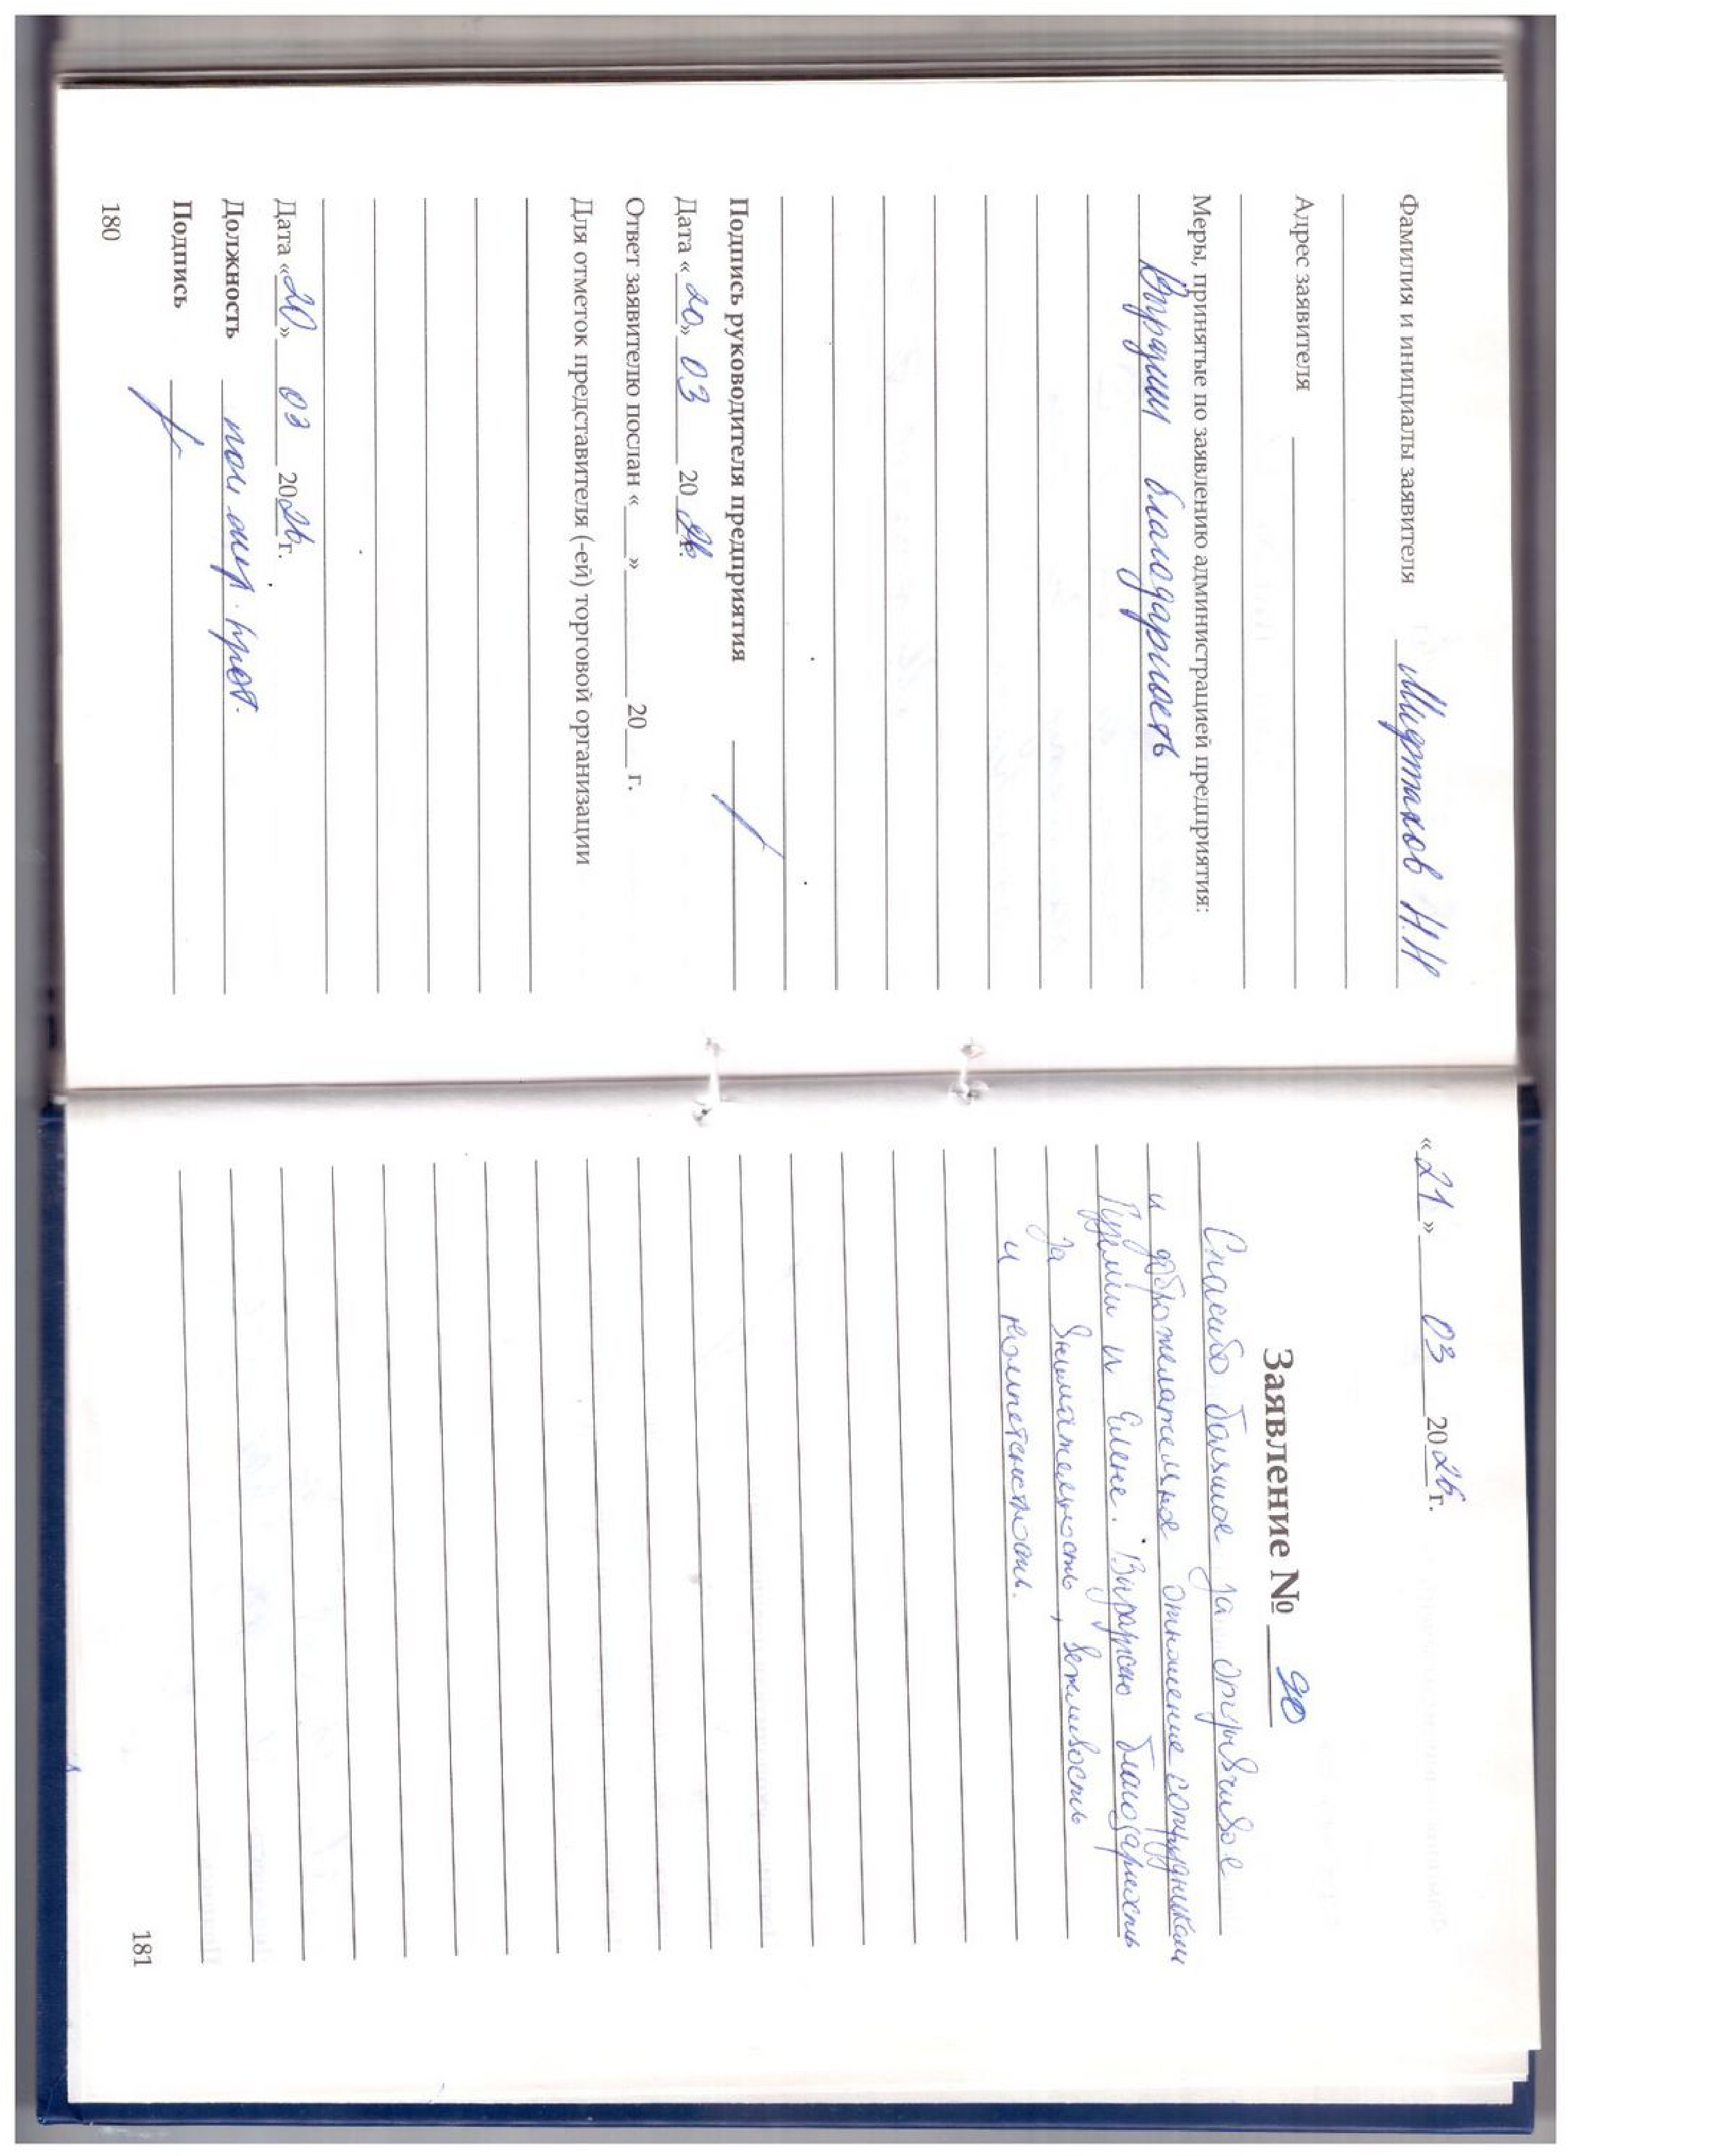 Фамилия и инициалы заявителя
Н.Н
Адрес заявителя
Меры, принятые по заявлению администрацией предприятия:
благодарность
Подпись руководителя предприятия
Дата «20» 03 2026.
Ответ заявителю послан «___» ______ 20__ г.
Для отметок представителя (-ей) торговой организации
Дата «20» 03 2026 г.
Должность
Подпись
180
«21» 03 2026 г.
Заявление № 90
Спасибо большое за отзывчивое
и доброжелательное отношение сотрудникам
и Елене. Выражаю благодарность
за внимательность, вежливость
и компетентность.
181